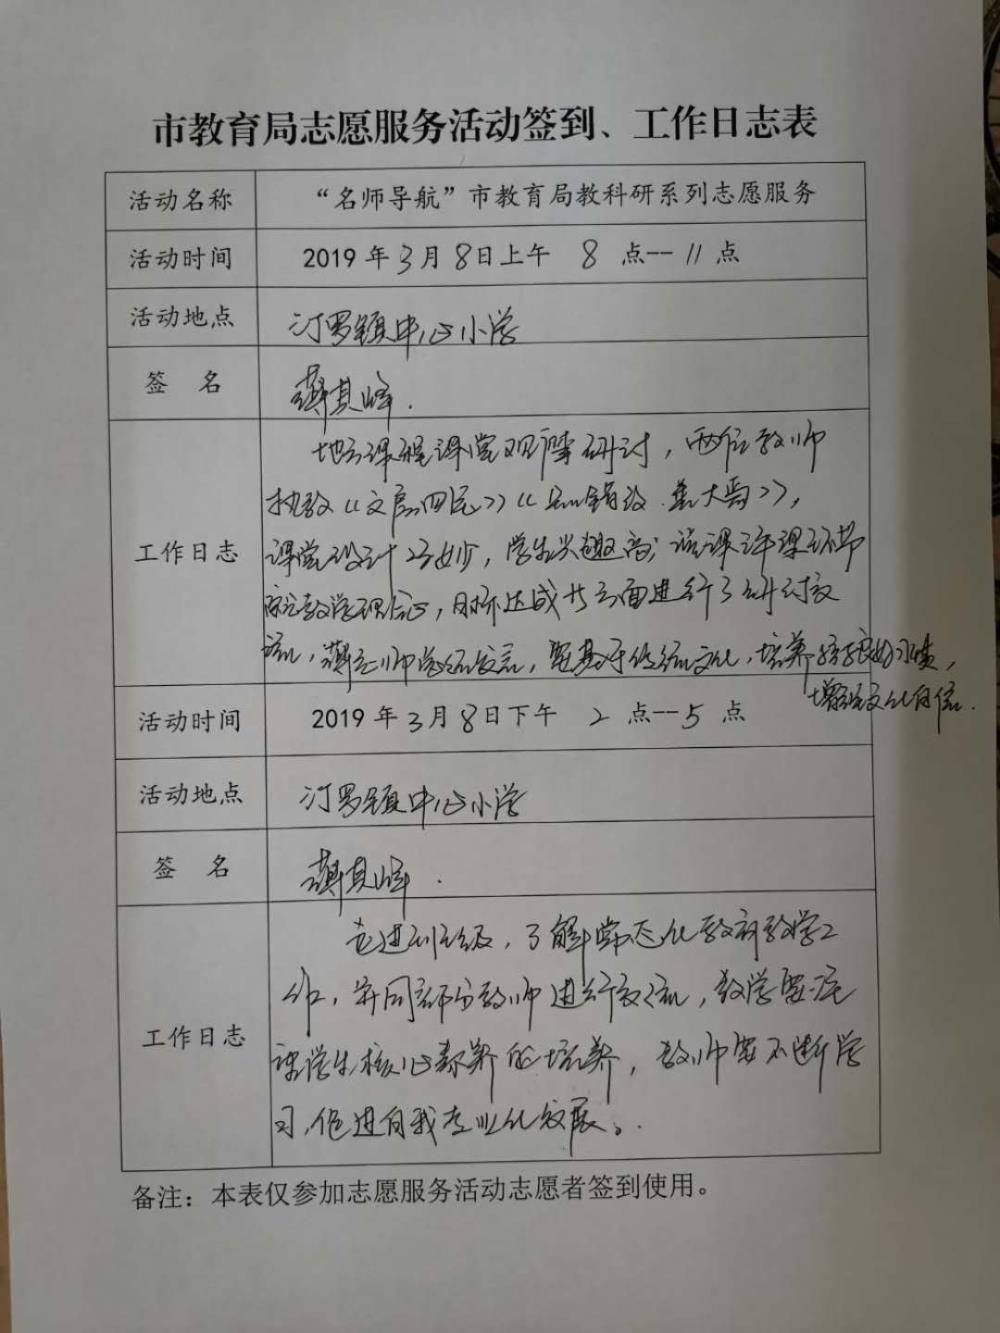 市教育局志愿服务活动签到、工作日志表
活动名称 “名师导航”市教育局教科研系列志愿服务
活动时间 2019年3月8日上午 8 点--11点
活动地点 汀罗镇中心小学
签 名 其峰.
工作日志
地方课程课堂观摩研讨，两位教师
执教《文房四宝》《 大禹》，
课堂设计巧妙，学生兴趣高；说课评课环节
教学理念，目标达成 方面进行了研讨交
流， 老师 发言，要基于传统文化，培养 良好习惯，
增强文化自信.
活动时间 2019年3月8日下午 2 点--5 点
活动地点 汀罗镇中心小学
签 名 其峰.
工作日志
走进 班级，了解常态化教育教学工
作，并同部分教师进行交流，教学要注
重学生核心素养的培养，教师要不断学
习，促进自我专业化发展。
备注：本表仅参加志愿服务活动志愿者签到使用。